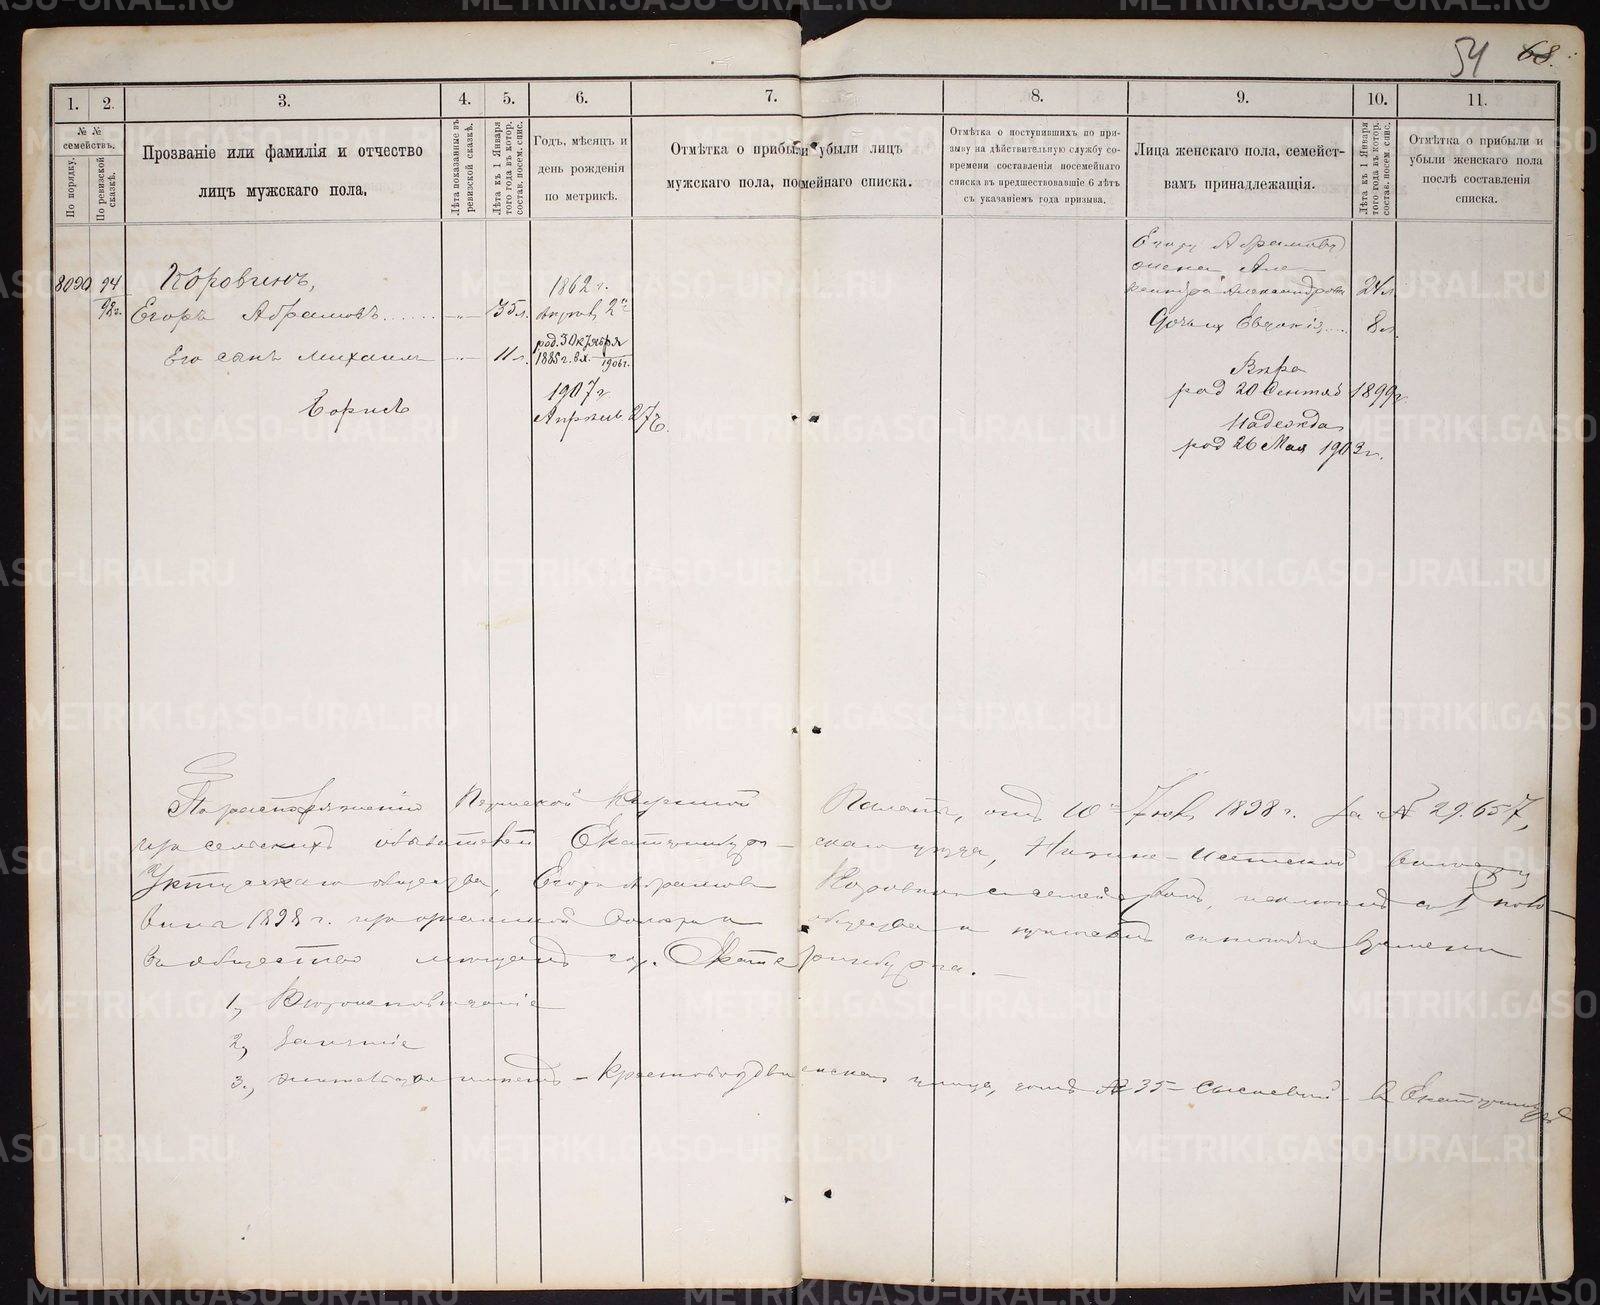 54 68.
1. 2. 3. 4. 5. 6. 7. 8. 9. 10. 11.
№ №
семействъ.
По порядку.
По ревизской
сказкѣ.
Прозваніе или фамилія и отчество
лицъ мужскаго пола.
Лѣта показанные въ
ревизской сказкѣ.
Лѣта къ 1 Января
того года въ котор.
состав. посем. спис.
Годъ, мѣсяцъ и
день рожденія
по метрикѣ.
Отмѣтка о прибыли убыли лицъ
мужскаго пола, посемейнаго списка.
Отмѣтка о поступившихъ по при-
зыву на дѣйствительную службу со-
времени составленія посемейнаго
списка въ предшествовавшіе 6 лѣтъ
съ указаніемъ года призыва.
Лица женскаго пола, семейст-
вамъ принадлежащія.
Лѣта къ 1 Января
того года въ котор.
состав. посем. спис.
Отмѣтка о прибыли и
убыли женскаго пола
послѣ составленія
списка.
8020 94 Коровинъ, 1862 г.
Егоръ Абрамовъ 35 л.
Его сынъ Михаилъ 11 л. род. 3 Октября
1885 г.
1906 г.
Борисъ 1907 г.
Апрѣль 27
Егора Абрамова
жена Але
ксандра Александрова 24 л.
Дочь их Евгенія 8 л.
Вѣра
род 20 Сентяб 1899 г.
Надежда
род 26 Мая 1903 г.
По распоряженію Пермской Казенной Палаты, отъ 10 1898 г. за № 29.657,
сельскихъ обывателей Екатеринбург-скаго уѣзда, Нижне-Исетской волости
Уктусскаго общества, Егоръ Абрамовъ Коровинъ съ семействомъ, исключенъ съ 1 поло-
вины 1898 г. волости и общества и времени
въ общество мѣщанъ гор. Екатеринбурга.
1, Вѣроисповѣданіе
2, Занятіе
3, жительство имѣетъ - Крестовоздвиженская улица, домъ № 35 - въ Екатеринбургѣ
METRIKI.GASO-URAL.RU